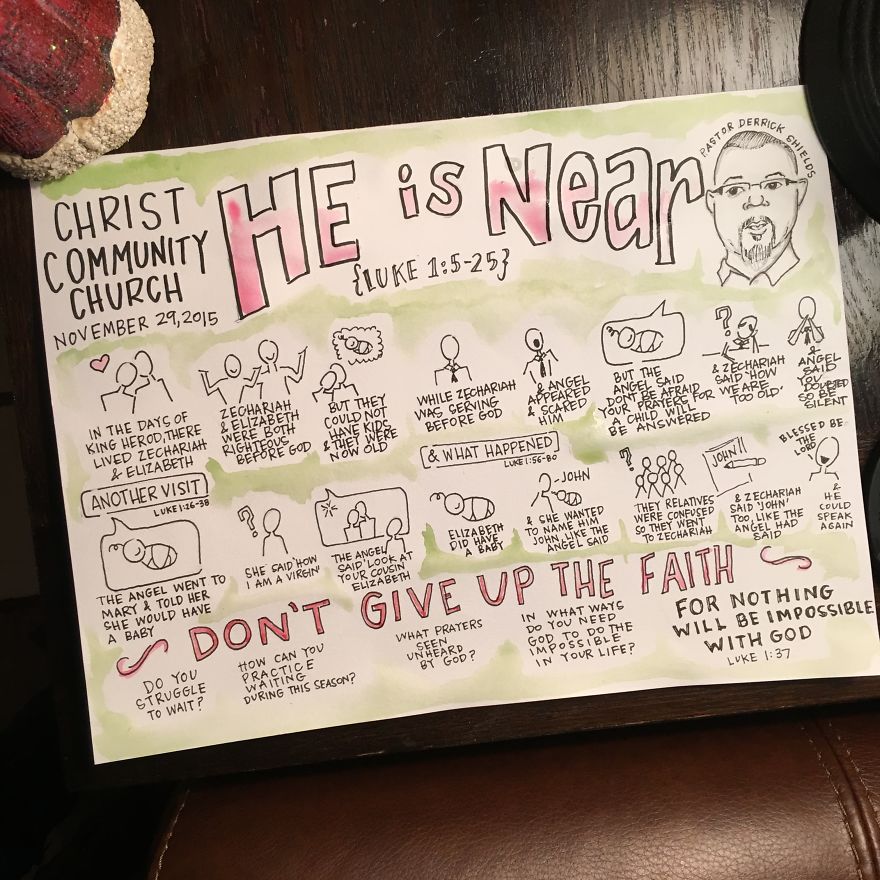 CHRIST
COMMUNITY
CHURCH
NOVEMBER 29, 2015
HE is Near
{LUKE 1:5-25}
PASTOR DERRICK SHIELDS
IN THE DAYS OF
KING HEROD, THERE
LIVED ZECHARIAH
& ELIZABETH
ZECHARIAH
& ELIZABETH
WERE BOTH
RIGHTEOUS
BEFORE GOD
BUT THEY
COULD NOT
HAVE KIDS
& THEY WERE
NOW OLD
WHILE ZECHARIAH
WAS SERVING
BEFORE GOD
& ANGEL
APPEARED
& SCARED
HIM
BUT THE
ANGEL SAID
DON'T BE AFRAID
YOUR PRAYERS FOR
A CHILD WILL
BE ANSWERED
?
& ZECHARIAH
SAID 'HOW
WE ARE
TOO OLD'
&
ANGEL
SAID
YOU
DOUBTED
SO BE
SILENT
ANOTHER VISIT
LUKE 1:26-38
THE ANGEL WENT TO
MARY & TOLD HER
SHE WOULD HAVE
A BABY
?
SHE SAID 'HOW
I AM A VIRGIN'
THE ANGEL
SAID 'LOOK AT
YOUR COUSIN
ELIZABETH
& WHAT HAPPENED
LUKE 1:56-80
ELIZABETH
DID HAVE
A BABY
JOHN
& SHE WANTED
TO NAME HIM
JOHN, LIKE THE
ANGEL SAID
?
THEY RELATIVES
WERE CONFUSED
SO THEY WENT
TO ZECHARIAH
JOHN!
& ZECHARIAH
SAID 'JOHN'
TOO, LIKE THE
ANGEL HAD
SAID
BLESSED BE
THE
LORD
&
HE
COULD
SPEAK
AGAIN
DON'T GIVE UP THE FAITH
DO YOU
STRUGGLE
TO WAIT?
HOW CAN YOU
PRACTICE
WAITING
DURING THIS SEASON?
WHAT PRAYERS
SEEN
UNHEARD
BY GOD?
IN WHAT WAYS
DO YOU NEED
GOD TO DO THE
IMPOSSIBLE
IN YOUR LIFE?
FOR NOTHING
WILL BE IMPOSSIBLE
WITH GOD
LUKE 1:37